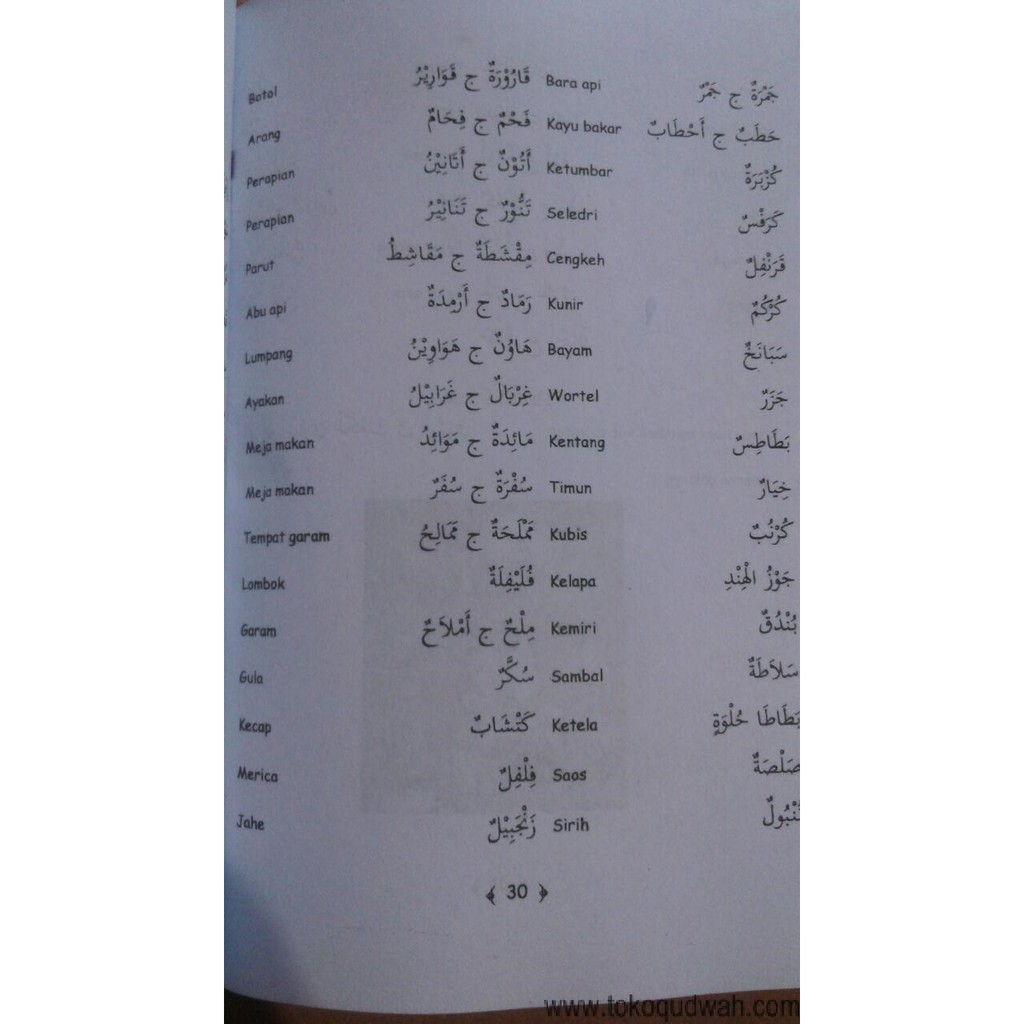 Botol قَارُوْرَةٌ ج قَوَارِيْرُ Bara api جَمْرَةٌ ج جَمْرٌ
Arang فَحْمٌ ج فِحَامٌ Kayu bakar حَطَبٌ ج أَحْطَابٌ
Perapian أَتُوْنٌ ج أَتَانِيْنُ Ketumbar كُزْبَرَةٌ
Perapian تَنُّوْرٌ ج تَنَانِيْرُ Seledri كَرَفْسٌ
Parut مِقْشَطَةٌ ج مَقَاشِطُ Cengkeh قَرَنْفِلٌ
Abu api رَمَادٌ ج أَرْمِدَةٌ Kunir كُرْكُمٌ
Lumpang هَاوُنٌ ج هَوَاوِيْنُ Bayam سَبَانَخٌ
Ayakan غِرْبَالٌ ج غَرَابِيْلُ Wortel جَزَرٌ
Meja makan مَائِدَةٌ ج مَوَائِدُ Kentang بَطَاطِسٌ
Meja makan سُفْرَةٌ ج سُفَرٌ Timun خِيَارٌ
Tempat garam مَمْلَحَةٌ ج مَمَالِحُ Kubis كُرْنُبٌ
Lombok فُلَيْفِلَةٌ Kelapa جَوْزُ الْهِنْدِ
Garam مِلْحٌ ج أَمْلاَحٌ Kemiri بُنْدُقٌ
Gula سُكَّرٌ Sambal سَلاَطَةٌ
Kecap كَتْشَابٌ Ketela بَطَاطَا حُلْوَةٍ
Merica فِلْفِلٌ Saos صَلْصَةٌ
Jahe زَنْجَبِيْلٌ Sirih تَنْبُولٌ
30
www.tokoqudwah.com